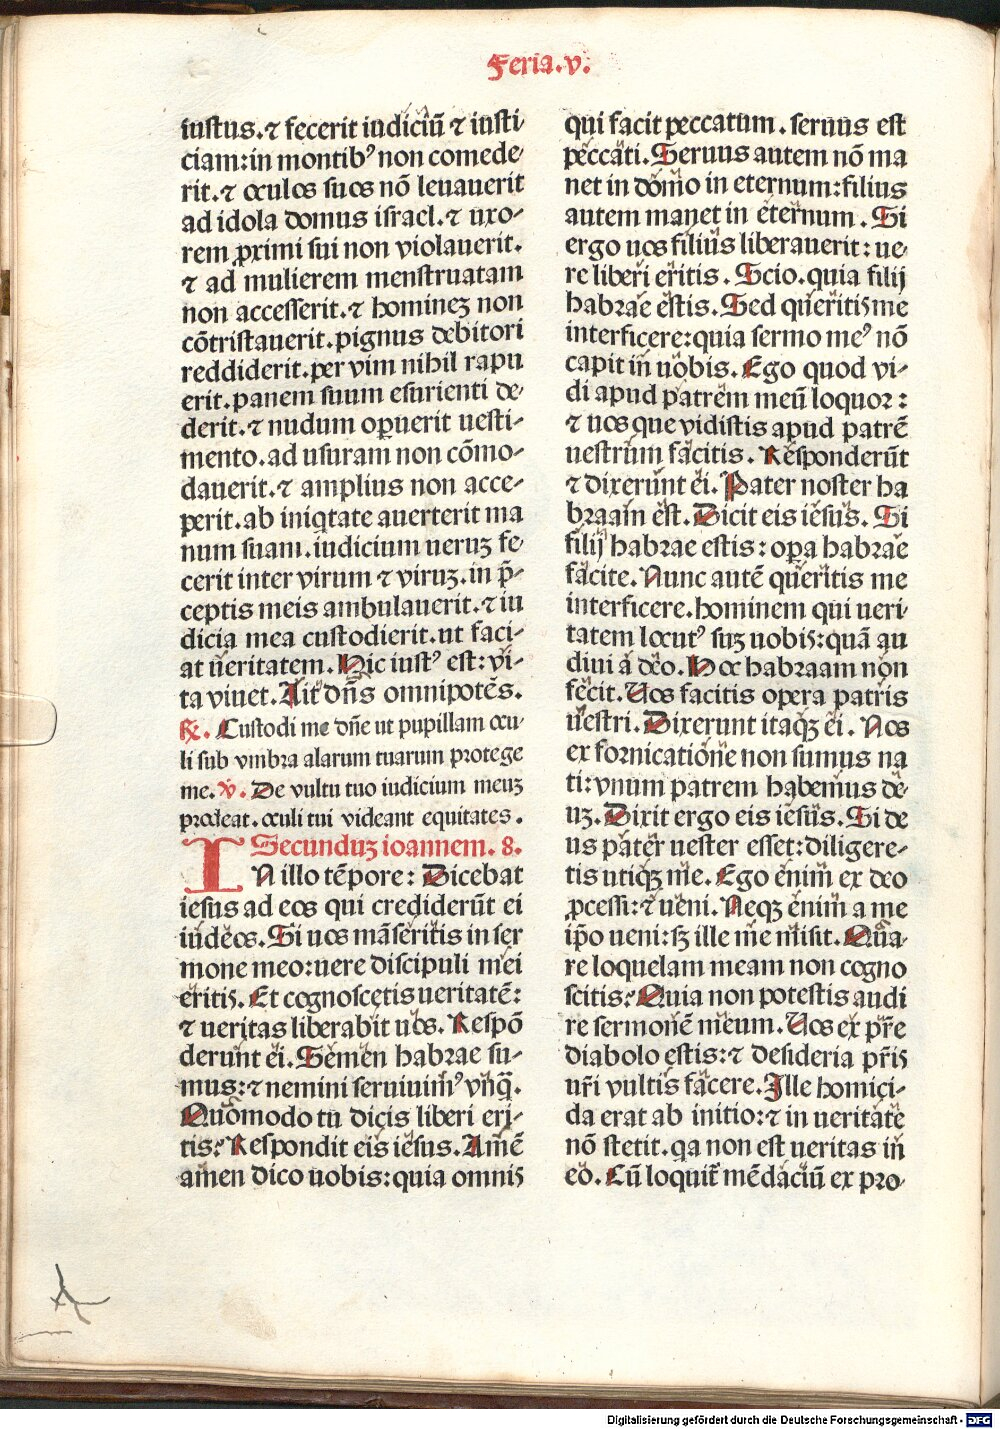 Feria.v.
iustus.⁊ fecerit iudiciū ⁊ iusti-
ciam:in montibꝰ non comede-
rit.⁊ oculos suos nō leuauerit
ad idola domus israel.⁊ uxo-
rem ꝓximi sui non violauerit.
⁊ ad mulierem menstruatam
non accesserit.⁊ homineꝫ non
cōtristauerit.pignus debitori
reddiderit.per vim nihil rapu
erit.panem suum esurienti de-
derit.⁊ nudum operuerit uesti-
mento.ad usuram non cōmo-
dauerit.⁊ amplius non acce-
perit.ab iniqtate auerterit ma
num suam.iudicium ueruꝫ fe-
cerit inter virum ⁊ viruꝫ.in p̄-
ceptis meis ambulauerit.⁊ iu
dicia mea custodierit.ut faci-
at ueritatem.Hic iustꝰ est:vi-
ta viuet.Ait dn̄s omnipotēs.
℟. Custodi me dn̄e ut pupillam ocu-
li sub vmbra alarum tuarum protege
me.℣. De vultu tuo iudicium meuꝫ
prodeat.oculi tui videant equitates.
Secunduꝫ ioannem. 8.
IN illo tēpore: Dicebat
iesus ad eos qui crediderūt ei
iudeos.Si uos māseritis in ser
mone meo:uere discipuli mei
eritis.Et cognoscetis ueritatē:
⁊ ueritas liberabit uos.Respō
derunt ei.Semen habrae su-
mus:⁊ nemini seruiuimꝰ vnq̄.
Quomodo tu dicis liberi eri-
tis?Respondit eis iesus.Amē
amen dico uobis:quia omnis
qui facit peccatum.seruus est
peccati.Seruus autem nō ma
net in domo in eternum:filius
autem manet in eternum.Si
ergo uos filius liberauerit:ue-
re liberi eritis.Scio.quia filij
habrae estis.Sed queritis me
interficere:quia sermo meꝰ nō
capit in uobis.Ego quod vi-
di apud patrem meū loquor:
⁊ uos que vidistis apud patrē
uestrum facitis.Responderūt
⁊ dixerunt ei.Pater noster ha
braam est.Dicit eis iesus.Si
filij habrae estis:opa habrae
facite.Nunc autē queritis me
interficere.hominem qui ueri-
tatem locutꝰ suꝫ uobis:quā au
diui a deo.Hoc habraam non
fecit.Uos facitis opera patris
uestri.Dixerunt itaqꝫ ei.Nos
ex fornicatione non sumus na
ti:vnum patrem habemus de-
uꝫ.Dixit ergo eis iesus.Si de
us pater uester esset:diligere-
tis utiqꝫ me.Ego enim ex deo
ꝓcessi:⁊ ueni.Neqꝫ enim a me
ip̄o ueni:sꝫ ille me misit.Qua-
re loquelam meam non cogno
scitis?Quia non potestis audi
re sermonē meum.Uos ex pr̄e
diabolo estis:⁊ desideria pr̄is
ur̄i vultis facere.Ille homici-
da erat ab initio:⁊ in ueritate
nō stetit.qa non est ueritas in
eo.Cū loquit̄ mēdaciū ex pro-
Digitalisierung gefördert durch die Deutsche Forschungsgemeinschaft - DFG